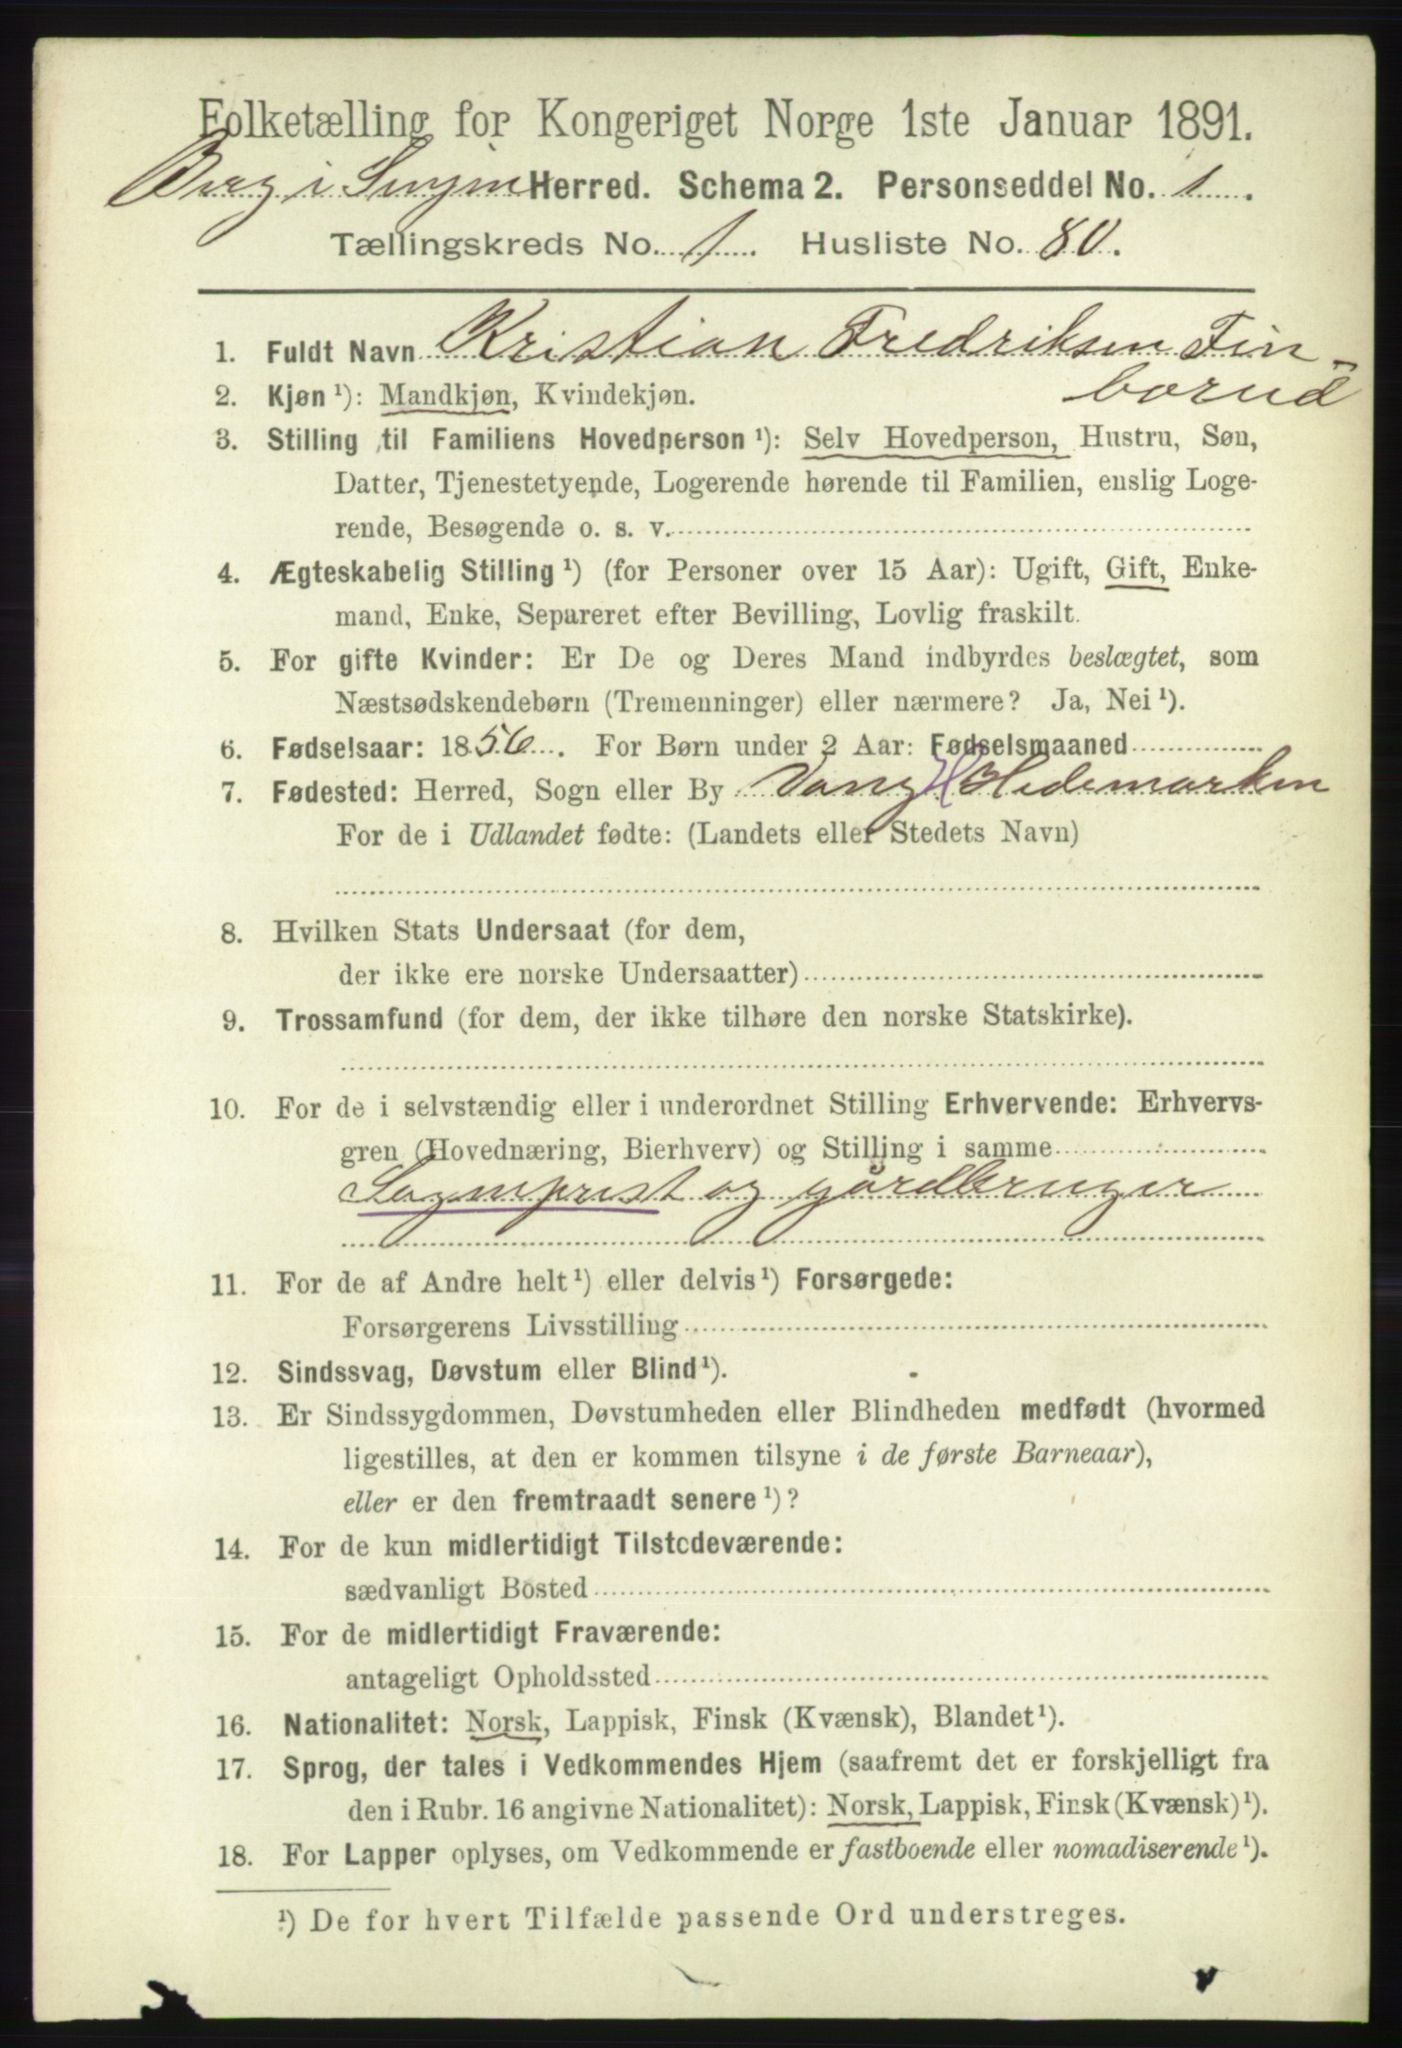 Folketælling for Kongeriget Norge 1ste Januar 1891.
Berg i Senjen Herred. Schema 2. Personseddel No. 1.
Tællingskreds No. 1. Husliste No. 80.
1. Fuldt Navn Kristian Fredriksen Fin-
borud
2. Kjøn ¹): Mandkjøn, Kvindekjøn.
3. Stilling til Familiens Hovedperson ¹): Selv Hovedperson, Hustru, Søn,
Datter, Tjenestetyende, Logerende hørende til Familien, enslig Loge-
rende, Besøgende o. s. v.
4. Ægteskabelig Stilling ¹) (for Personer over 15 Aar): Ugift, Gift, Enke-
mand, Enke, Separeret efter Bevilling, Lovlig fraskilt.
5. For gifte Kvinder: Er De og Deres Mand indbyrdes beslægtet, som
Næstsødskendebørn (Tremenninger) eller nærmere? Ja, Nei ¹).
6. Fødselsaar: 1856. For Børn under 2 Aar: Fødselsmaaned
7. Fødested: Herred, Sogn eller By Vang H Hedemarken
For de i Udlandet fødte: (Landets eller Stedets Navn)
8. Hvilken Stats Undersaat (for dem,
der ikke ere norske Undersaatter)
9. Trossamfund (for dem, der ikke tilhøre den norske Statskirke).
10. For de i selvstændig eller i underordnet Stilling Erhvervende: Erhvervs-
gren (Hovednæring, Bierhverv) og Stilling i samme
Sogneprest og gårdbruger
11. For de af Andre helt ¹) eller delvis ¹) Forsørgede:
Forsørgerens Livsstilling
12. Sindssvag, Døvstum eller Blind ¹).
13. Er Sindssygdommen, Døvstumheden eller Blindheden medfødt (hvormed
ligestilles, at den er kommen tilsyne i de første Barneaar),
eller er den fremtraadt senere ¹)?
14. For de kun midlertidigt Tilstedeværende:
sædvanligt Bosted
15. For de midlertidigt Fraværende:
antageligt Opholdssted
16. Nationalitet: Norsk, Lappisk, Finsk (Kvænsk), Blandet ¹).
17. Sprog, der tales i Vedkommendes Hjem (saafremt det er forskjelligt fra
den i Rubr. 16 angivne Nationalitet): Norsk, Lappisk, Finsk (Kvænsk) ¹).
18. For Lapper oplyses, om Vedkommende er fastboende eller nomadiserende ¹).
¹) De for hvert Tilfælde passende Ord understreges.